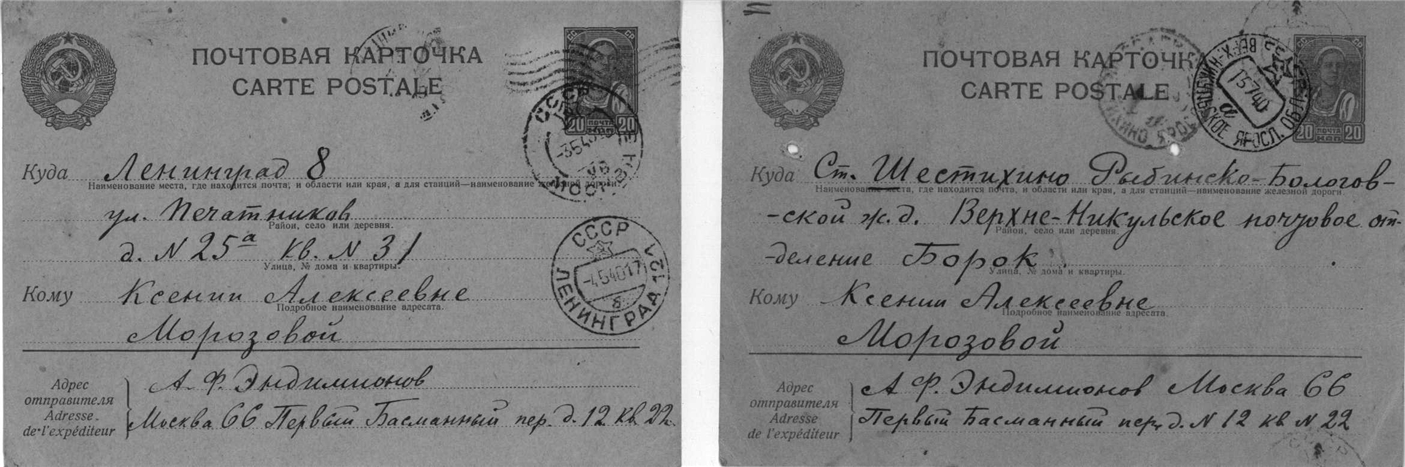 ПОЧТОВАЯ КАРТОЧКА
CARTE POSTALE
20 20
ПОЧТА
СССР
МОСКВА
Куда Ленинград 8
Наименование места, где находится почта; и области или края, а для станций—наименование железной дороги.
ул. Печатников
Район, село или деревня.
д. N 25а кв. N 31
Улица, № дома и квартиры.
СССР
-4 5 40 17
ЛЕНИНГРАД 121
Кому Ксении Алексеевне
Подробное наименование адресата.
Морозовой
Адрес отправителя
Adresse de l'expéditeur
А. Ф. Эндимионов
Москва 66 Первый Басманный пер. д. 12 кв 22
ПОЧТОВАЯ КАРТОЧКА
CARTE POSTALE
20 20
15 7 40
ЯРОСЛ. ОБЛ.
Куда Ст. Шестихино Рыбинско-Бологов-
Наименование места, где находится почта; и области или края, а для станций—наименование железной дороги.
-ской ж.д. Верхне-Никульское почтовое от-
Район, село или деревня.
-деление Борок
Улица, № дома и квартиры.
Кому Ксении Алексеевне
Подробное наименование адресата.
Морозовой
Адрес отправителя
Adresse de l'expéditeur
А. Ф. Эндимионов Москва 66
Первый Басманный пер. д. N 12 кв N 22